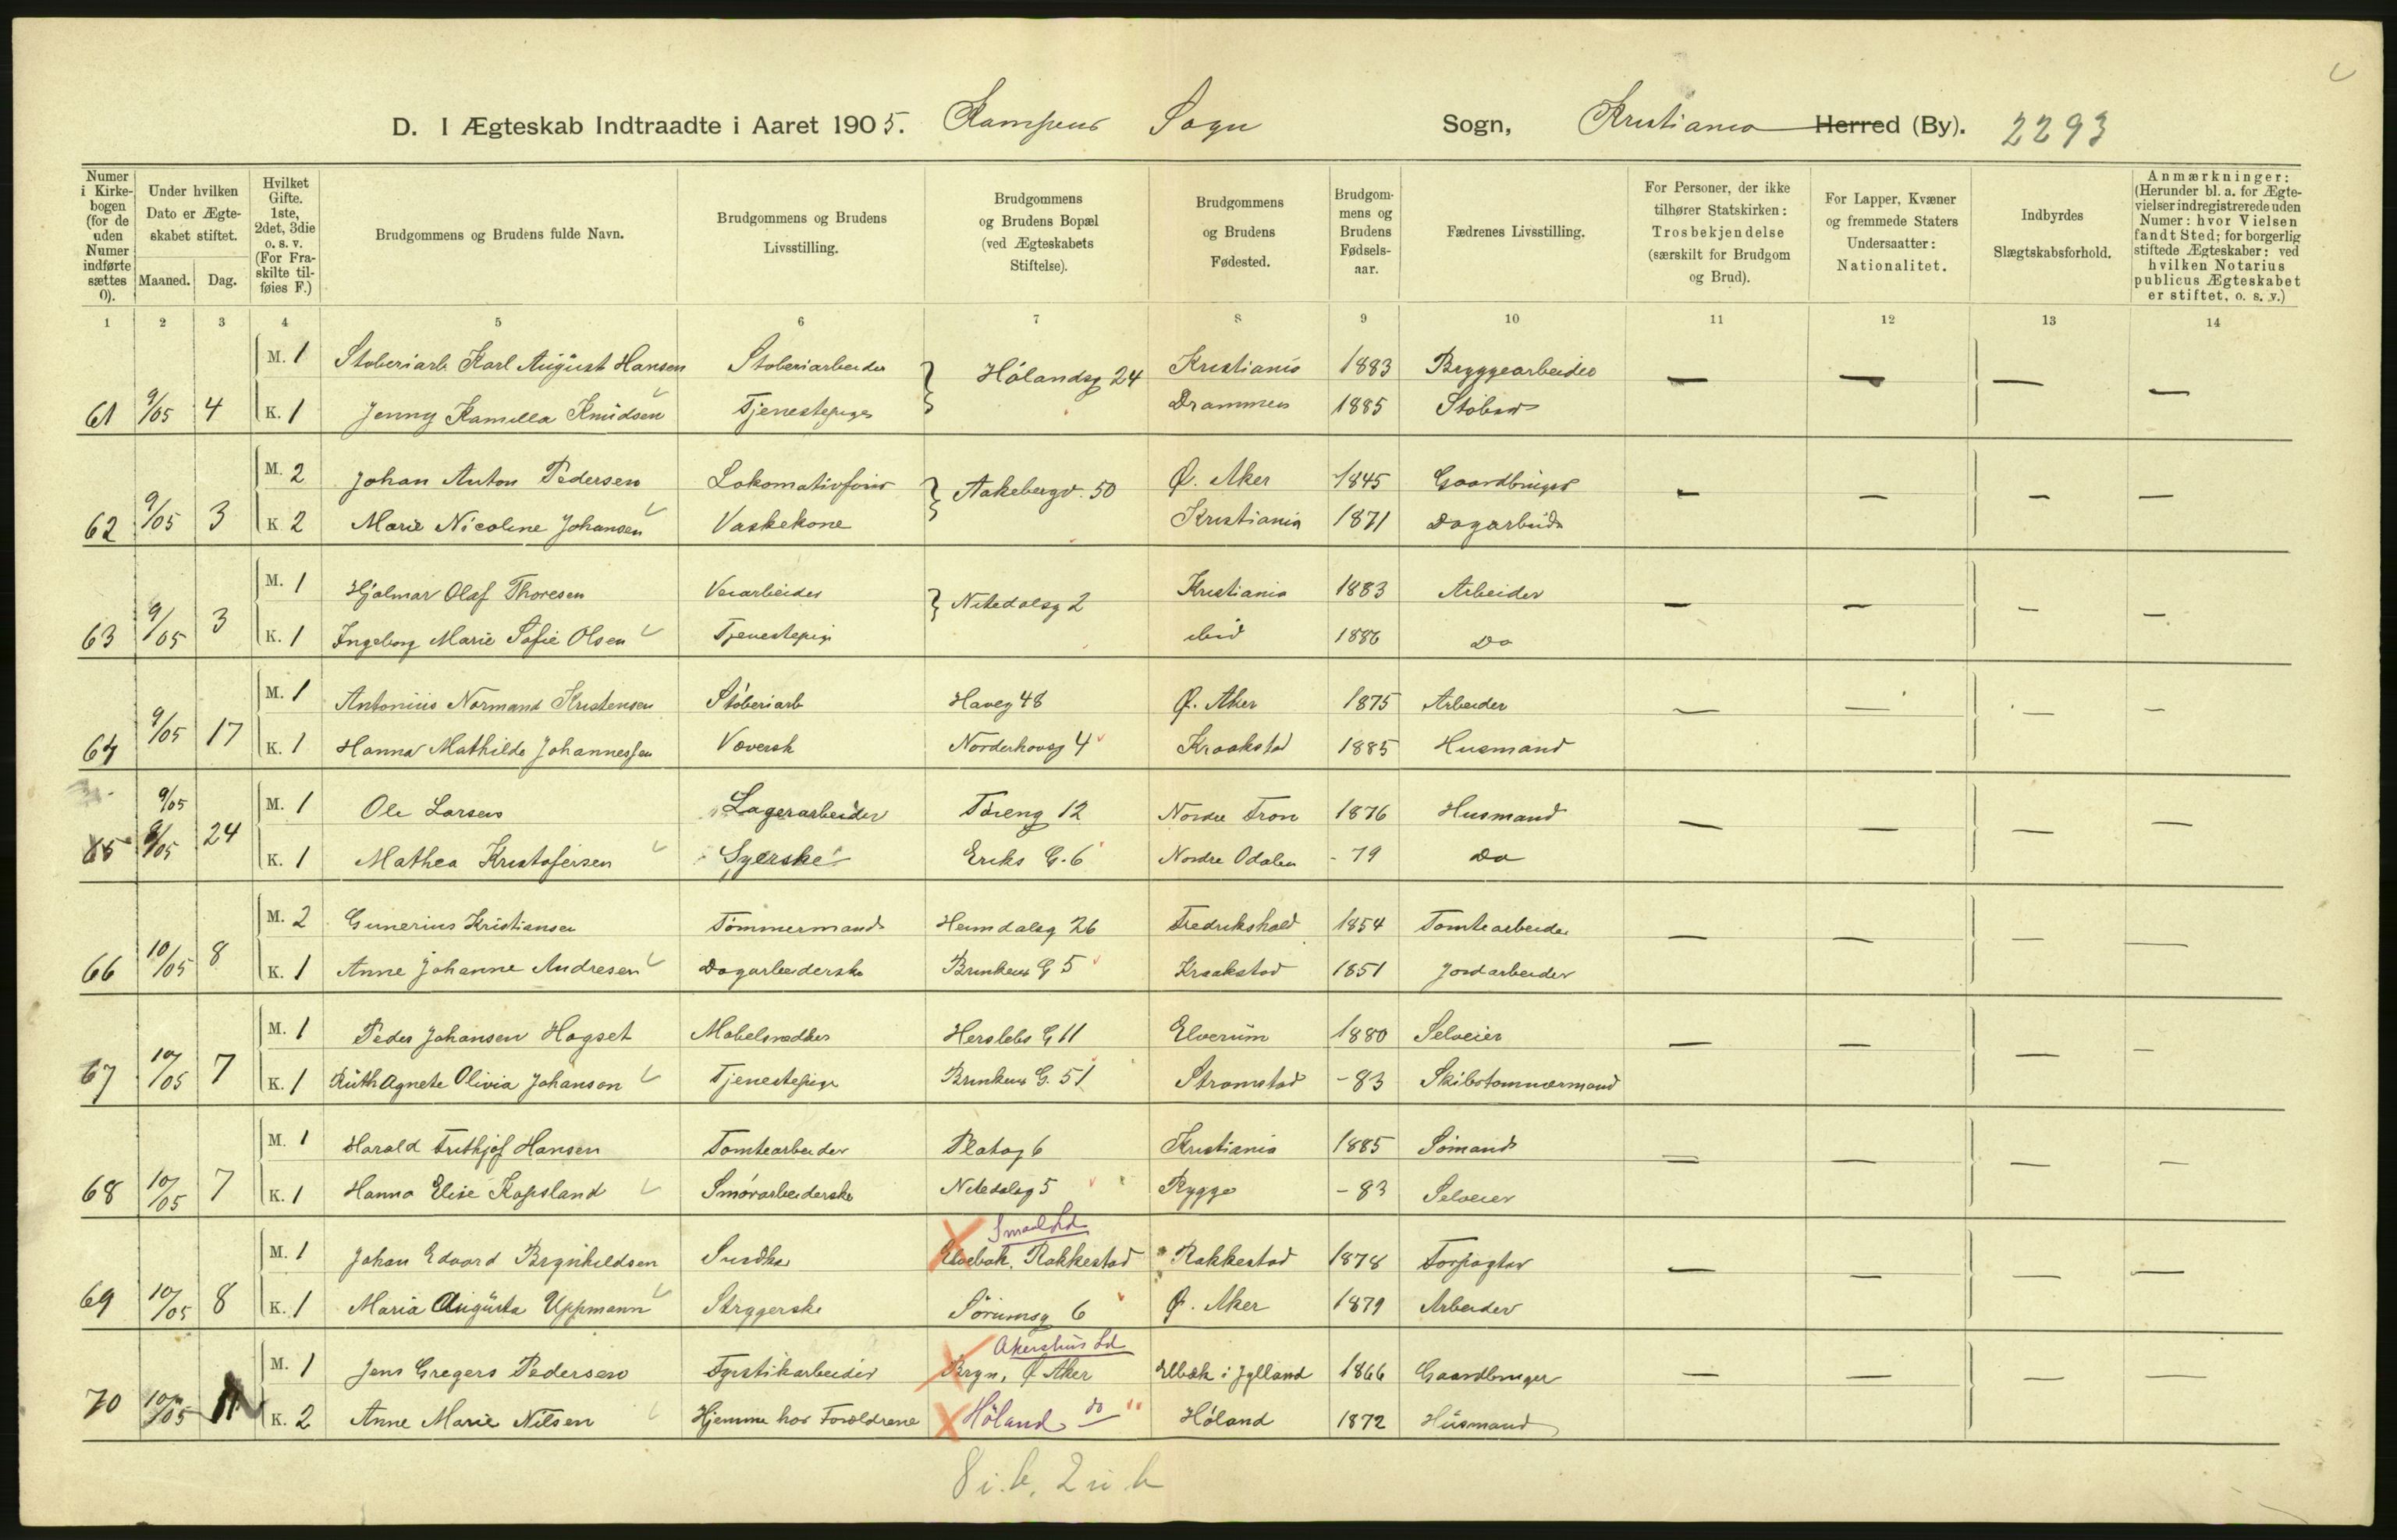 D. I Ægteskab Indtraadte i Aaret 1905. Kampens Sogn Sogn, Kristiania Herred (By). 2293
Numer i Kirkebogen (for de uden Numer indførte sættes 0).
Under hvilken Dato er Ægteskabet stiftet.
Maaned. Dag.
Hvilket Gifte. 1ste, 2det, 3die o. s. v. (For Fraskilte tilføies F.)
Brudgommens og Brudens fulde Navn.
Brudgommens og Brudens Livsstilling.
Brudgommens og Brudens Bopæl (ved Ægteskabets Stiftelse).
Brudgommens og Brudens Fødested.
Brudgommens og Brudens Fødselsaar.
Fædrenes Livsstilling.
For Personer, der ikke tilhører Statskirken: Trosbekjendelse (særskilt for Brudgom og Brud).
For Lapper, Kvæner og fremmede Staters Undersaatter: Nationalitet.
Indbyrdes Slægtskabsforhold.
Anmærkninger: (Herunder bl. a. for Ægtevielser indregistrerede uden Numer: hvor Vielsen fandt Sted; for borgerlig stiftede Ægteskaber: ved hvilken Notarius publicus Ægteskabet er stiftet, o. s. v.)
1 2 3 4 5 6 7 8 9 10 11 12 13 14
M. 1 Støberiarb Karl August Hansen Støberiarbeider Hølandsg 24 Kristiania 1883 Bryggearbeider — — — —
61 9/05 4 K. 1 Jenny Kamilla Knudsen Tjenestepige Drammen 1885 Støber
M. 2 Johan Anton Pedersen Lokomotivfører Aakebergv. 50 Ø. Aker 1845 Gaardbruger — — — —
62 9/05 3 K. 2 Marie Nicoline Johansen Vaskekone Kristiania 1871 Dagarbeider
M. 1 Hjalmar Olaf Thoresen Veiarbeider Nitedalsg 2 Kristiania 1883 Arbeider — — — —
63 9/05 3 K. 1 Ingeborg Marie Sofie Olsen Tjenestepige ibid 1886 Do
M. 1 Antonius Normand Kristensen Støberiarb Haveg 48 Ø. Aker 1875 Arbeider — — — —
64 9/05 17 K. 1 Hanna Mathilde Johannessen Væversk Norderhovsg 4 Kraakstad 1885 Husmand
9/05 M. 1 Ole Larsen Lagerarbeider Tøieng 12 Nordre Fron 1876 Husmand — — — —
65 9/05 24 K. 1 Mathea Kristofersen Syerske Eriks G. 6 Nordre Odalen - 79 Do
M. 2 Gunerius Kristiansen Tømmermand Heimdalsg 26 Fredrikshald 1854 Tomtearbeider — — — —
66 10/05 8 K. 1 Anne Johanne Andresen Dagarbeiderske Brinkens G 5 Kraakstad 1851 Jordarbeider
M. 1 Peder Johansen Hagset Møbelsnedker Herslebs G 11 Elverum 1880 Selveier — — — —
67 10/05 7 K. 1 Ruth Agnete Olivia Johanson Tjenestepige Brinkens G. 51 Strømstad - 83 Skibstømmermand
M. 1 Harald Frithjof Hansen Tomtearbeider Platog 6 Kristiania 1885 Sømand — — — —
68 10/05 7 K. 1 Hanna Elise Kapsland Smørarbeiderske Nitedalsg 5 Rygge - 83 Selveier
Smaal.Ld
M. 1 Johan Edvard Brynhildsen Snedker Rakkestad Rakkestad 1878 Forpagter — — — —
69 10/05 8 K. 1 Maria Augusta Uppmann Strygerske Sørumsg 6 Ø. Aker 1879 Arbeider
Akershus Ld
M. 1 Jens Gregers Pedersen Fyrstikarbeider Bryn, Ø Aker Elbæk i Jylland 1866 Gaardbruger — — — —
70 10/05 11 K. 2 Anne Marie Nilsen Hjemme hos Forældrene Høland do Høland 1872 Husmand
8 i. b. 2 u. b